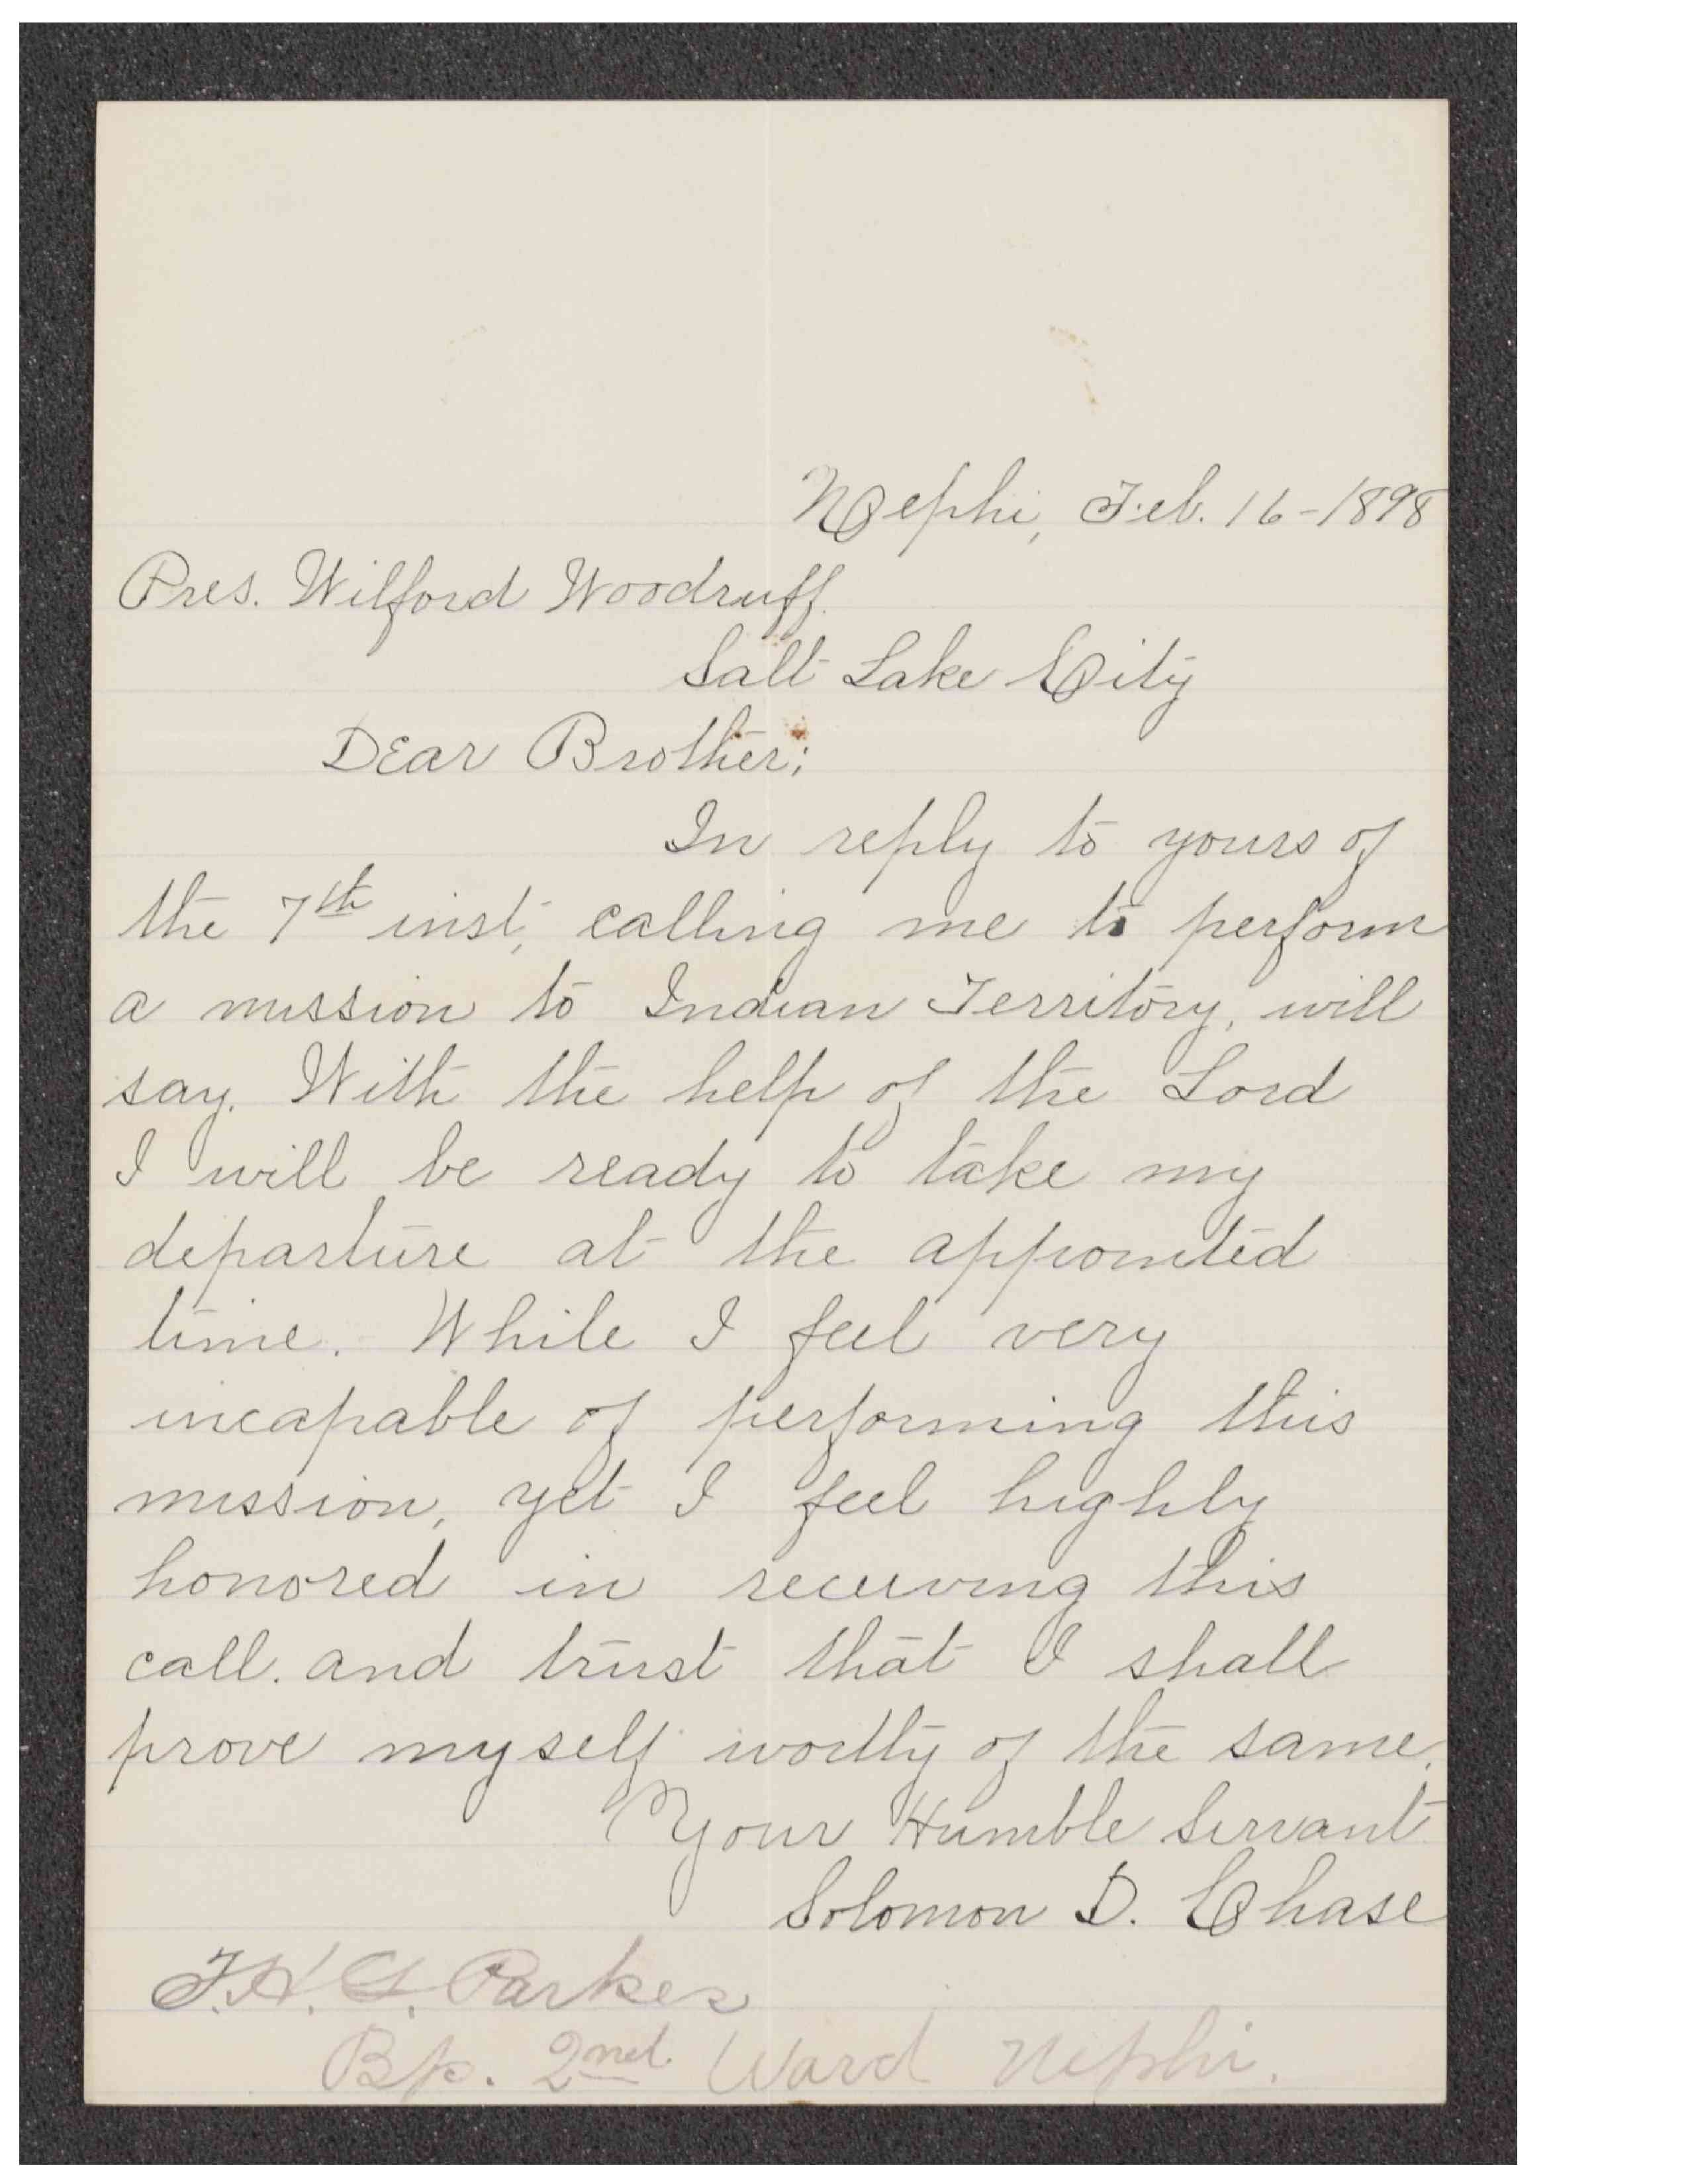 Nephi, Feb. 16-1898
Pres. Wilford Woodruff.
Salt Lake City
Dear Brother;
In reply to yours of
the 7th inst, calling me to perform
a mission to Indian Territory, will
say. With the help of the Lord
I will be ready to take my
departure at the appointed
time. While I feel very
incapable of performing this
mission, yet I feel highly
honored in receiving this
call. and trust that I shall
prove myself worthy of the same.
Your Humble Servant
Solomon D. Chase
T.H.G. Parkes
Bp. 2nd Ward Nephi.